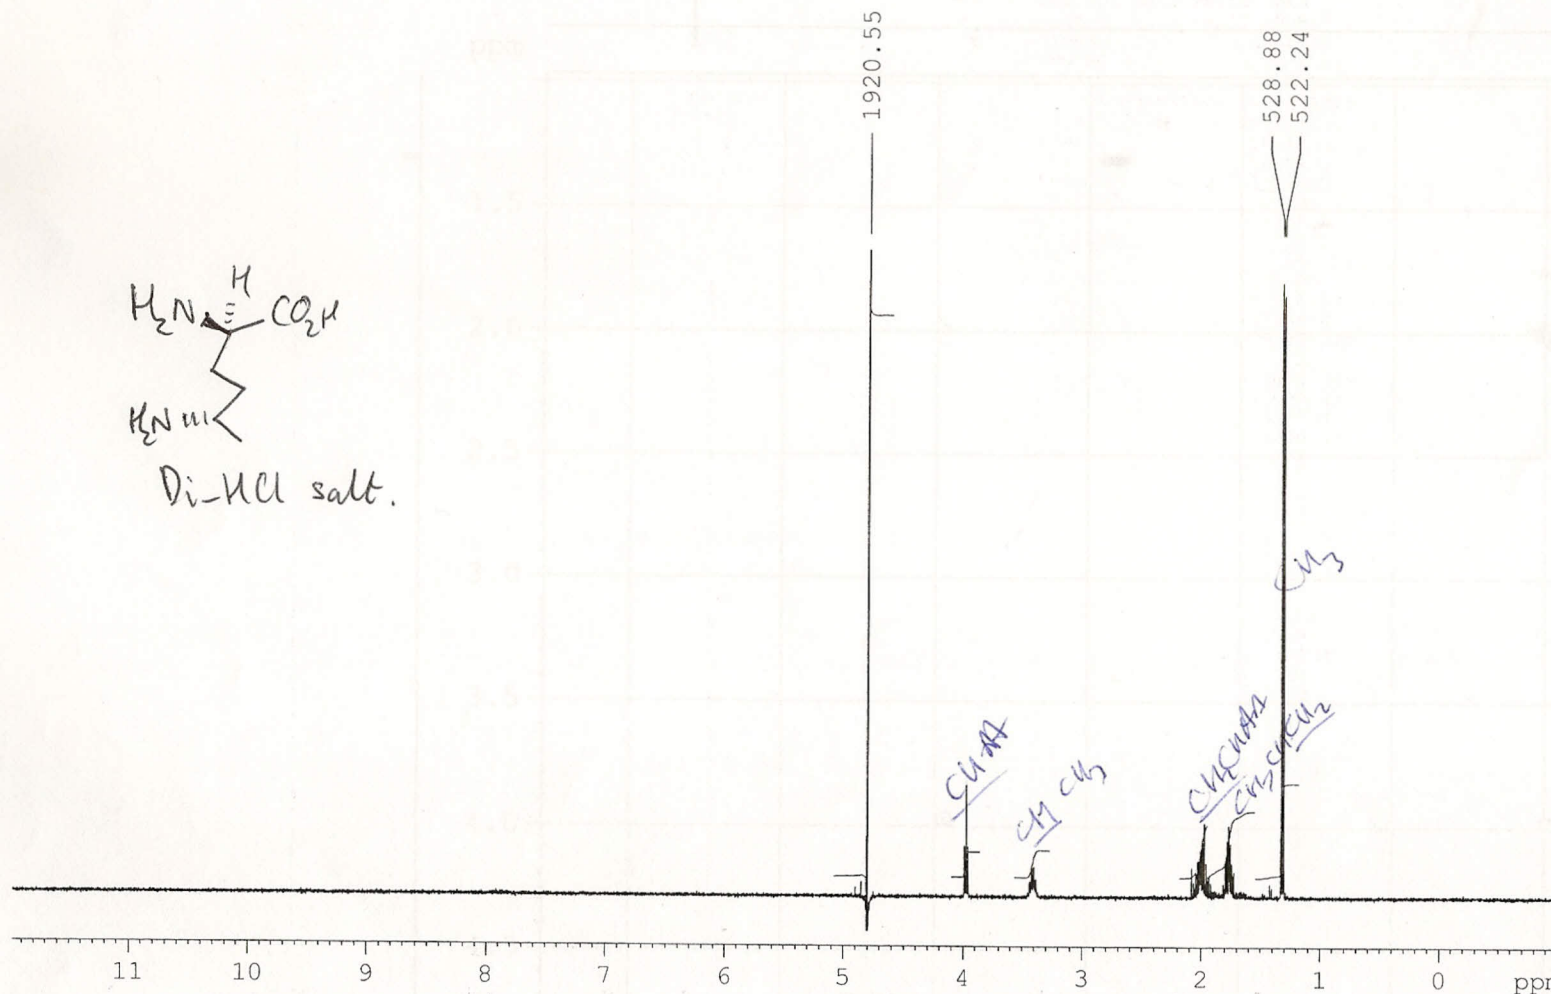 1920.55
528.88
522.24
H₂N H CO₂H
H₂N
Di-HCl salt.
CH₃
CH CH₃
CH₃CHCH₂
11 10 9 8 7 6 5 4 3 2 1 0 ppm